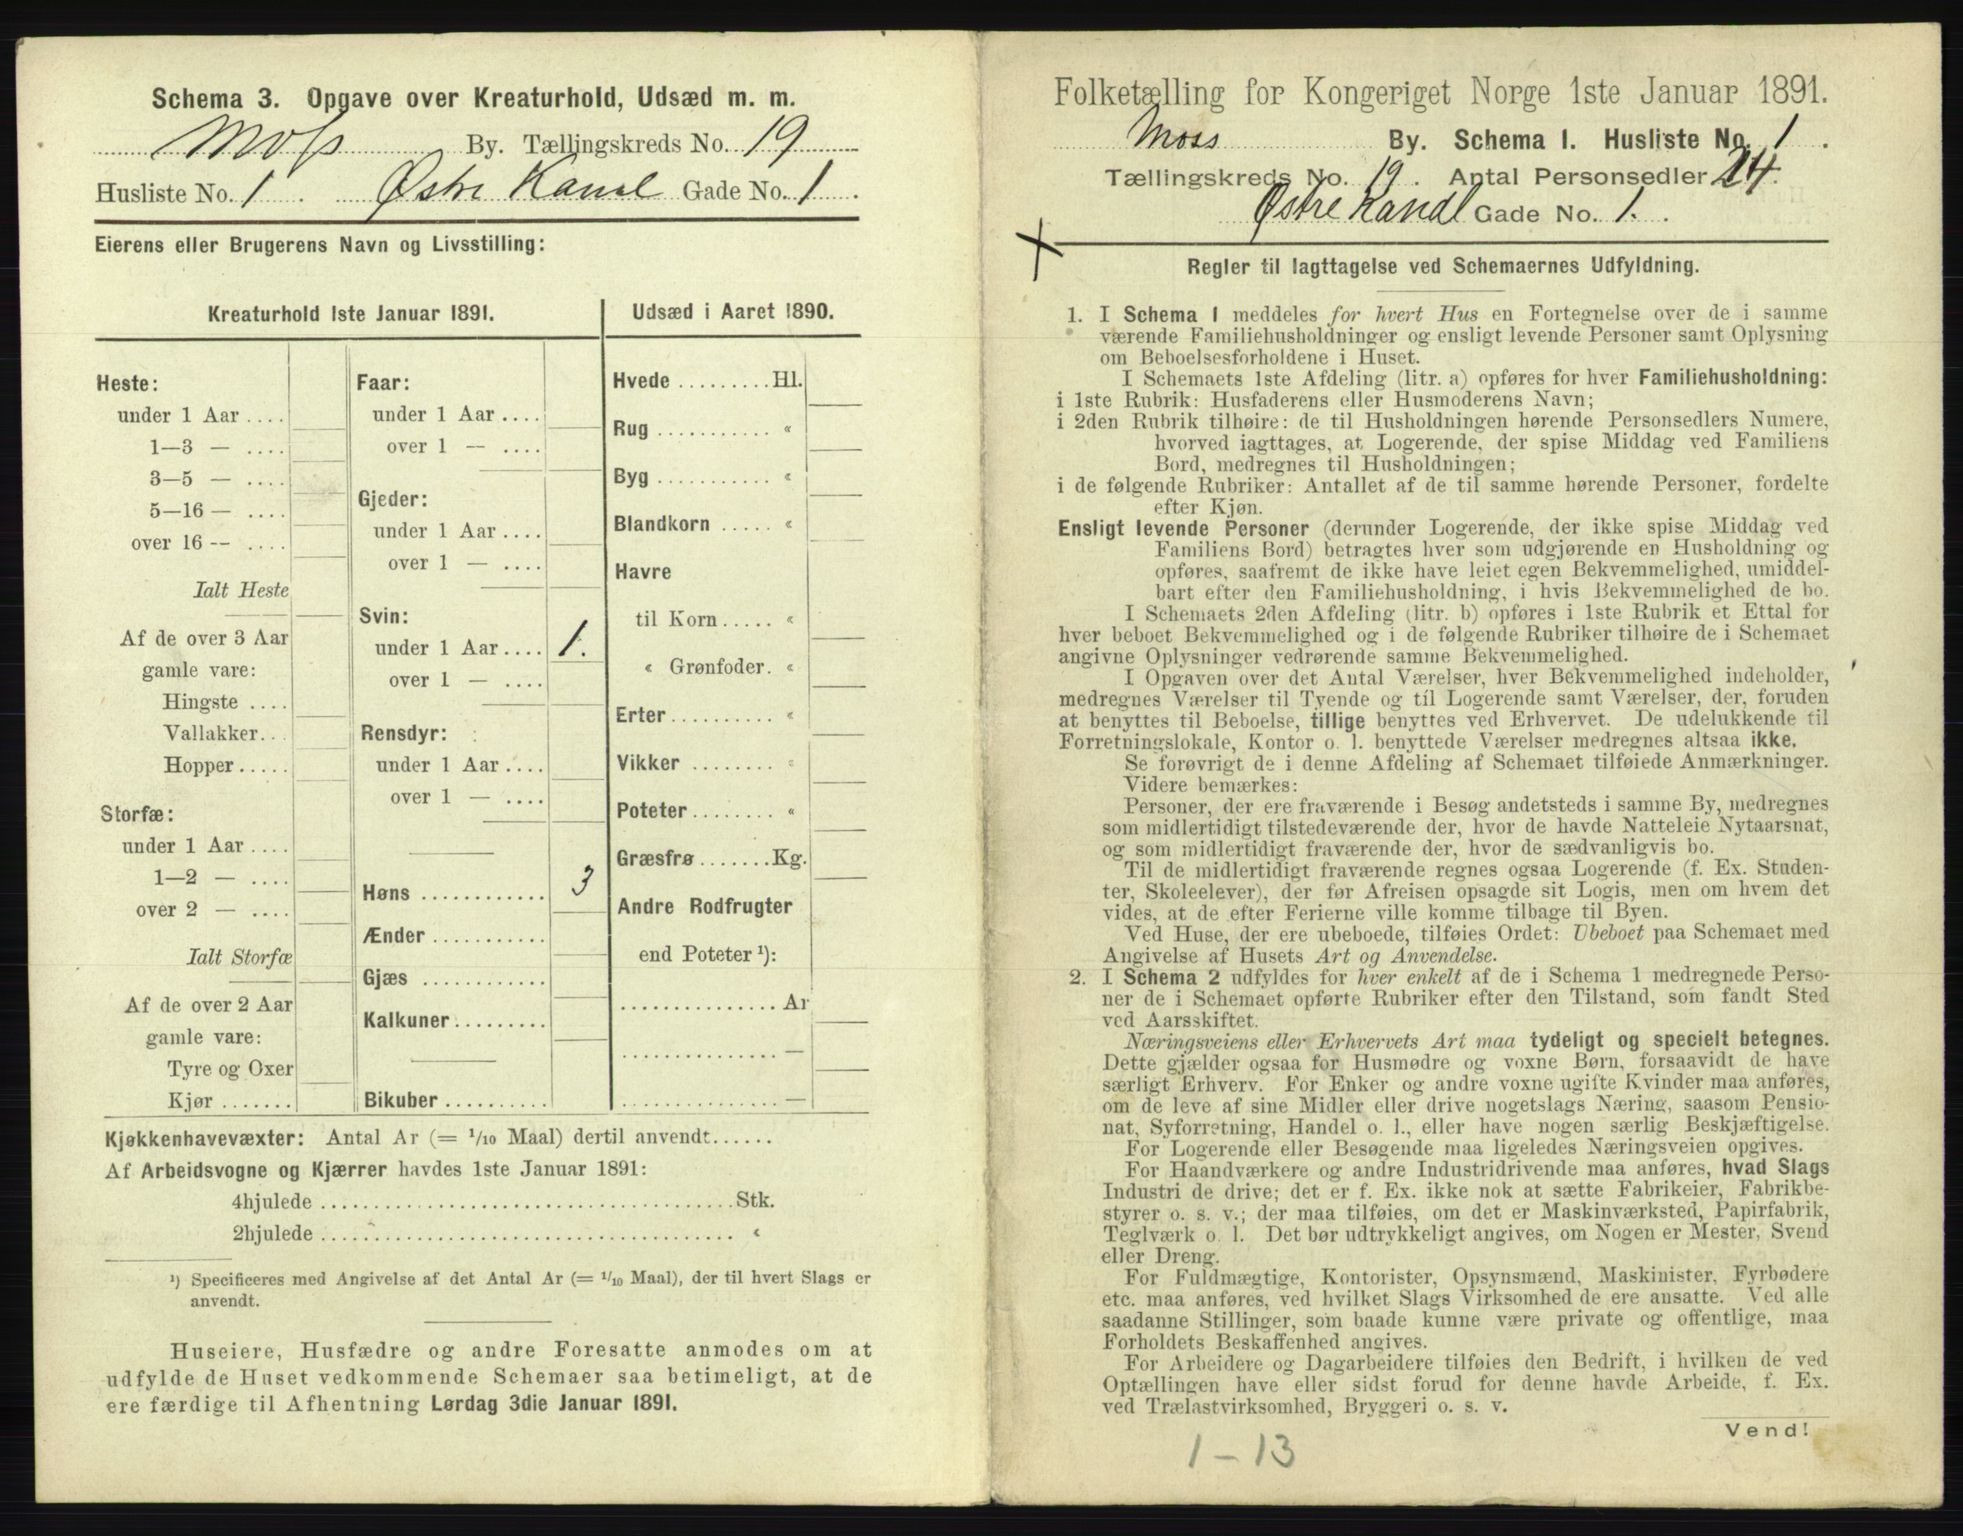 Schema 3. Opgave over Kreaturhold, Udsæd m. m.
Moss By. Tællingskreds No. 19
Husliste No. 1. Østre Kanal Gade No. 1.
Eierens eller Brugerens Navn og Livsstilling:
Kreaturhold 1ste Januar 1891.
Heste:
under 1 Aar ....
1—3 — ....
3—5 — ....
5—16 — ....
over 16 -- ....
Ialt Heste
Af de over 3 Aar
gamle vare:
Hingste ....
Vallakker...
Hopper .....
Storfæ:
under 1 Aar ....
1—2 — ....
over 2 — ....
Ialt Storfæ
Af de over 2 Aar
gamle vare:
Tyre og Oxer
Kjør .......
Faar:
under 1 Aar ....
over 1 — ....
Gjeder:
under 1 Aar ....
over 1 — ....
Svin:
under 1 Aar .... 1.
over 1 — ....
Rensdyr:
under 1 Aar ....
over 1 — ....
Høns ............ 3
Ænder ...........
Gjæs ............
Kalkuner.........
Bikuber ..........
Udsæd i Aaret 1890.
Hvede .........Hl.
Rug ........... «
Byg ........... «
Blandkorn ..... «
Havre
til Korn ..... «
« Grønfoder. «
Erter .......... «
Vikker ........ «
Poteter ........ «
Græsfrø .......Kg.
Andre Rodfrugter
end Poteter ¹):
............... Ar
............... —
............... —
Kjøkkenhavevæxter: Antal Ar (= 1/10 Maal) dertil anvendt......
Af Arbeidsvogne og Kjærrer havdes 1ste Januar 1891:
4hjulede ........................................Stk.
2hjulede ........................................ «
¹) Specificeres med Angivelse af det Antal Ar (= 1/10 Maal), der til hvert Slags er
anvendt.
Huseiere, Husfædre og andre Foresatte anmodes om at
udfylde de Huset vedkommende Schemaer saa betimeligt, at de
ere færdige til Afhentning Lørdag 3die Januar 1891.
Folketælling for Kongeriget Norge 1ste Januar 1891.
Moss By. Schema I. Husliste No. 1.
Tællingskreds No. 19. Antal Personsedler 24.
Østre Kanal Gade No. 1.
Regler til Iagttagelse ved Schemaernes Udfyldning.
1. I Schema 1 meddeles for hvert Hus en Fortegnelse over de i samme
værende Familiehusholdninger og ensligt levende Personer samt Oplysning
om Beboelsesforholdene i Huset.
I Schemaets 1ste Afdeling (litr. a) opføres for hver Familiehusholdning:
i 1ste Rubrik: Husfaderens eller Husmoderens Navn;
i 2den Rubrik tilhøire: de til Husholdningen hørende Personsedlers Numere,
hvorved iagttages, at Logerende, der spise Middag ved Familiens
Bord, medregnes til Husholdningen;
i de følgende Rubriker: Antallet af de til samme hørende Personer, fordelte
efter Kjøn.
Ensligt levende Personer (derunder Logerende, der ikke spise Middag ved
Familiens Bord) betragtes hver som udgjørende en Husholdning og
opføres, saafremt de ikke have leiet egen Bekvemmelighed, umiddel-
bart efter den Familiehusholdning, i hvis Bekvemmelighed de bo.
I Schemaets 2den Afdeling (litr. b) opføres i 1ste Rubrik et Ettal for
hver beboet Bekvemmelighed og i de følgende Rubriker tilhøire de i Schemaet
angivne Oplysninger vedrørende samme Bekvemmelighed.
I Opgaven over det Antal Værelser, hver Bekvemmelighed indeholder,
medregnes Værelser til Tyende og til Logerende samt Værelser, der, foruden
at benyttes til Beboelse, tillige benyttes ved Erhvervet. De udelukkende til
Forretningslokale, Kontor o. l. benyttede Værelser medregnes altsaa ikke.
Se forøvrigt de i denne Afdeling af Schemaet tilføiede Anmærkninger.
Videre bemærkes:
Personer, der ere fraværende i Besøg andetsteds i samme By, medregnes
som midlertidigt tilstedeværende der, hvor de havde Natteleie Nytaarsnat,
og som midlertidigt fraværende der, hvor de sædvanligvis bo.
Til de midlertidigt fraværende regnes ogsaa Logerende (f. Ex. Studen-
ter, Skoleelever), der før Afreisen opsagde sit Logis, men om hvem det
vides, at de efter Ferierne ville komme tilbage til Byen.
Ved Huse, der ere ubeboede, tilføies Ordet: Ubeboet paa Schemaet med
Angivelse af Husets Art og Anvendelse.
2. I Schema 2 udfyldes for hver enkelt af de i Schema 1 medregnede Perso-
ner de i Schemaet opførte Rubriker efter den Tilstand, som fandt Sted
ved Aarsskiftet.
Næringsveiens eller Erhvervets Art maa tydeligt og specielt betegnes.
Dette gjælder ogsaa for Husmødre og voxne Børn, forsaavidt de have
særligt Erhverv. For Enker og andre voxne ugifte Kvinder maa anføres,
om de leve af sine Midler eller drive nogetslags Næring, saasom Pensio-
nat, Syforretning, Handel o. l., eller have nogen særlig Beskjæftigelse.
For Logerende eller Besøgende maa ligeledes Næringsveien opgives.
For Haandværkere og andre Industridrivende maa anføres, hvad Slags
Industri de drive; det er f. Ex. ikke nok at sætte Fabrikeier, Fabrikbe-
styrer o. s. v.; der maa tilføies, om det er Maskinværksted, Papirfabrik,
Teglværk o. l. Det bør udtrykkeligt angives, om Nogen er Mester, Svend
eller Dreng.
For Fuldmægtige, Kontorister, Opsynsmænd, Maskinister, Fyrbødere
etc. maa anføres, ved hvilket Slags Virksomhed de ere ansatte. Ved alle
saadanne Stillinger, som baade kunne være private og offentlige, maa
Forholdets Beskaffenhed angives.
For Arbeidere og Dagarbeidere tilføies den Bedrift, i hvilken de ved
Optællingen have eller sidst forud for denne havde Arbeide, f. Ex.
ved Trælastvirksomhed, Bryggeri o. s. v.
Vend!
1 - 13